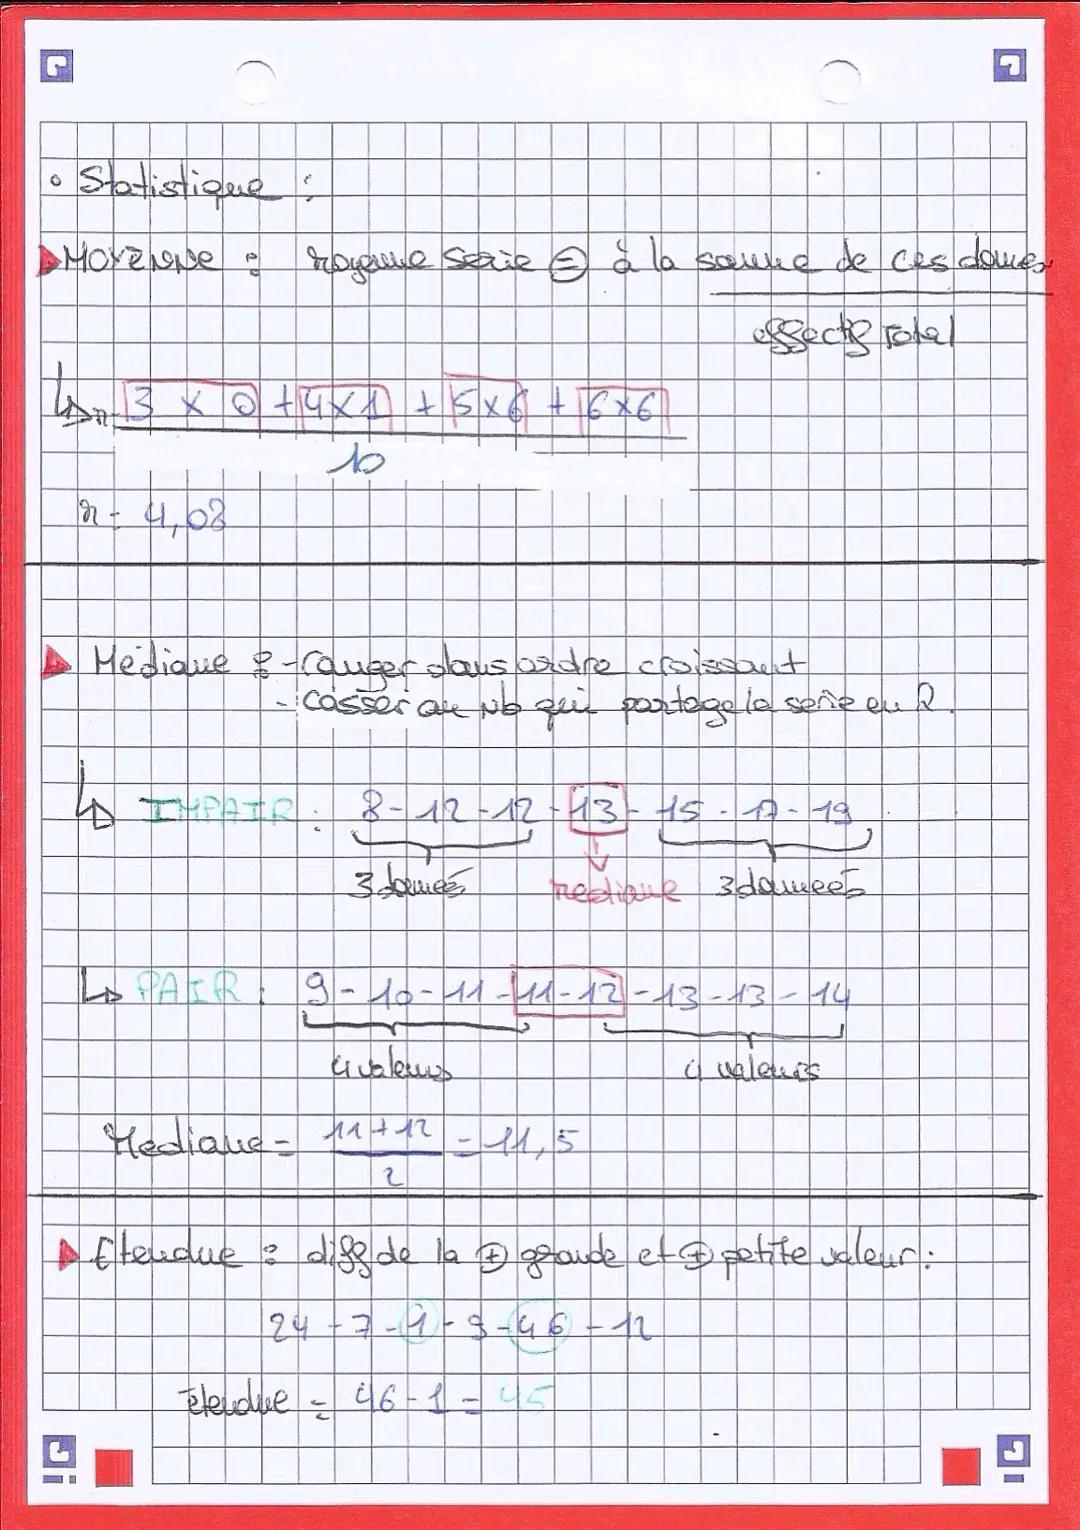 • Statistique :
MOYENNE : moyenne serie = à la somme de ces données
effectif Total
3 x 0 + 4x1 + 5x6 + 6x6
10
= 4,08
Médiane : - ranger dans ordre croissant
- casser au Nb qui partage la serie en 2.
IMPAIR : 8 - 12 - 12 - 13 - 15 - 17 - 19
3 données mediane 3 données
PAIR : 9 - 10 - 11 - 11 - 12 - 13 - 13 - 14
4 valeurs 4 valeurs
Mediane = 11 + 12 = 11,5
2
Etendue : diff de la + grande et + petite valeur :
24 - 7 - 1 - 9 - 46 - 12
Etendue = 46 - 1 = 45